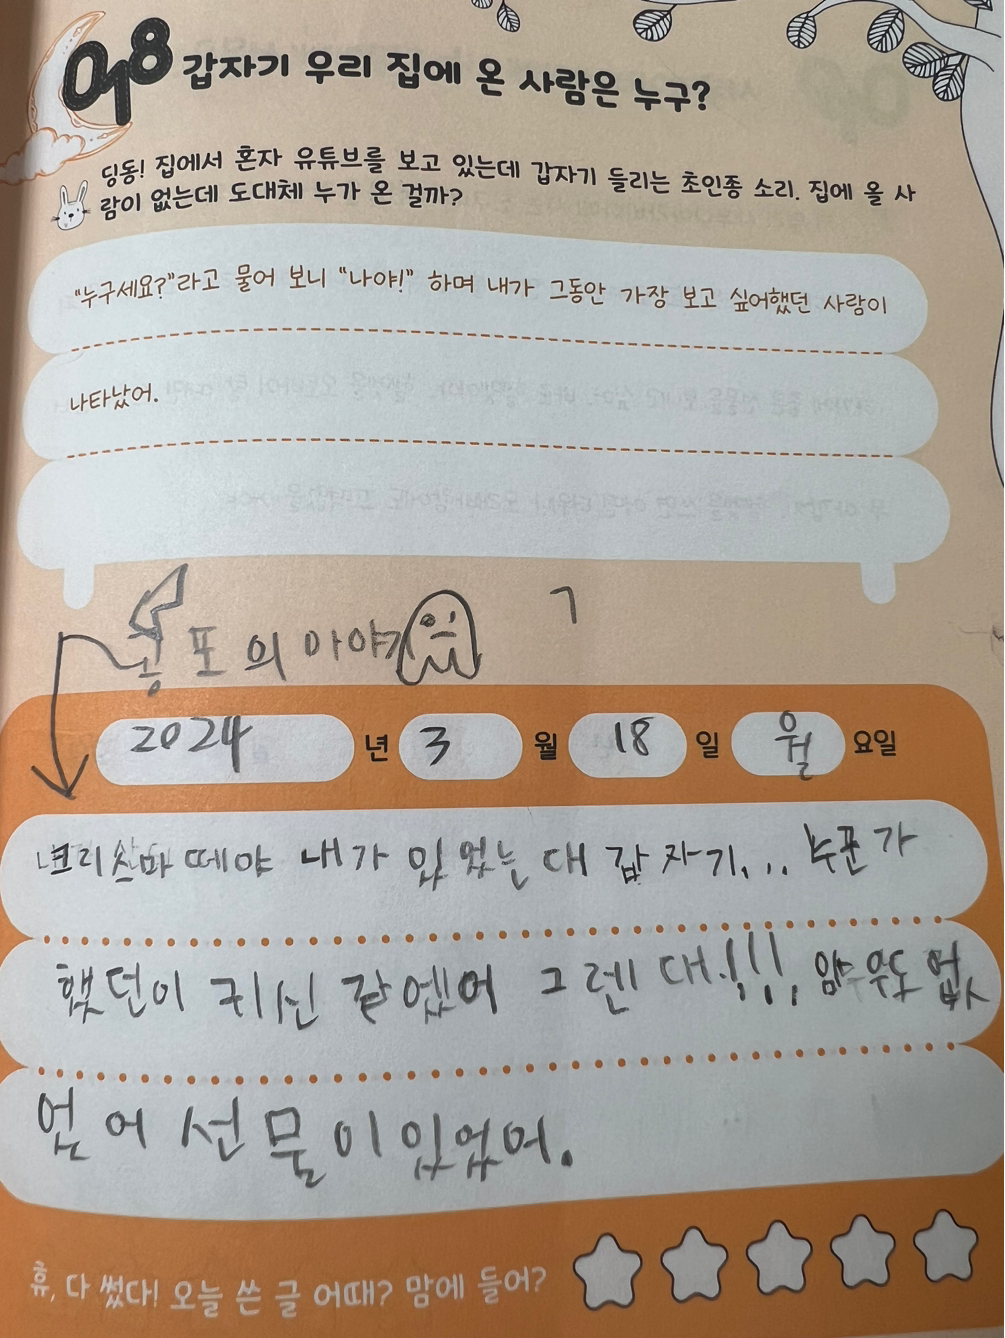 018 갑자기 우리 집에 온 사람은 누구?
딩동! 집에서 혼자 유튜브를 보고 있는데 갑자기 들리는 초인종 소리. 집에 올 사
람이 없는데 도대체 누가 온 걸까?
"누구세요?"라고 물어 보니 "나야!" 하며 내가 그동안 가장 보고 싶어했던 사람이
나타났어.
ㄱ
공포의 이야기
2024 년 3 월 18 일 월 요일
크리스마 떼야 내가 있었는대 갑자기... 누군가
했던이 귀신 같엤어 그렌대!!!! 암우도 없
없어 선물이 있었어.
휴, 다 썼다! 오늘 쓴 글 어때? 맘에 들어?